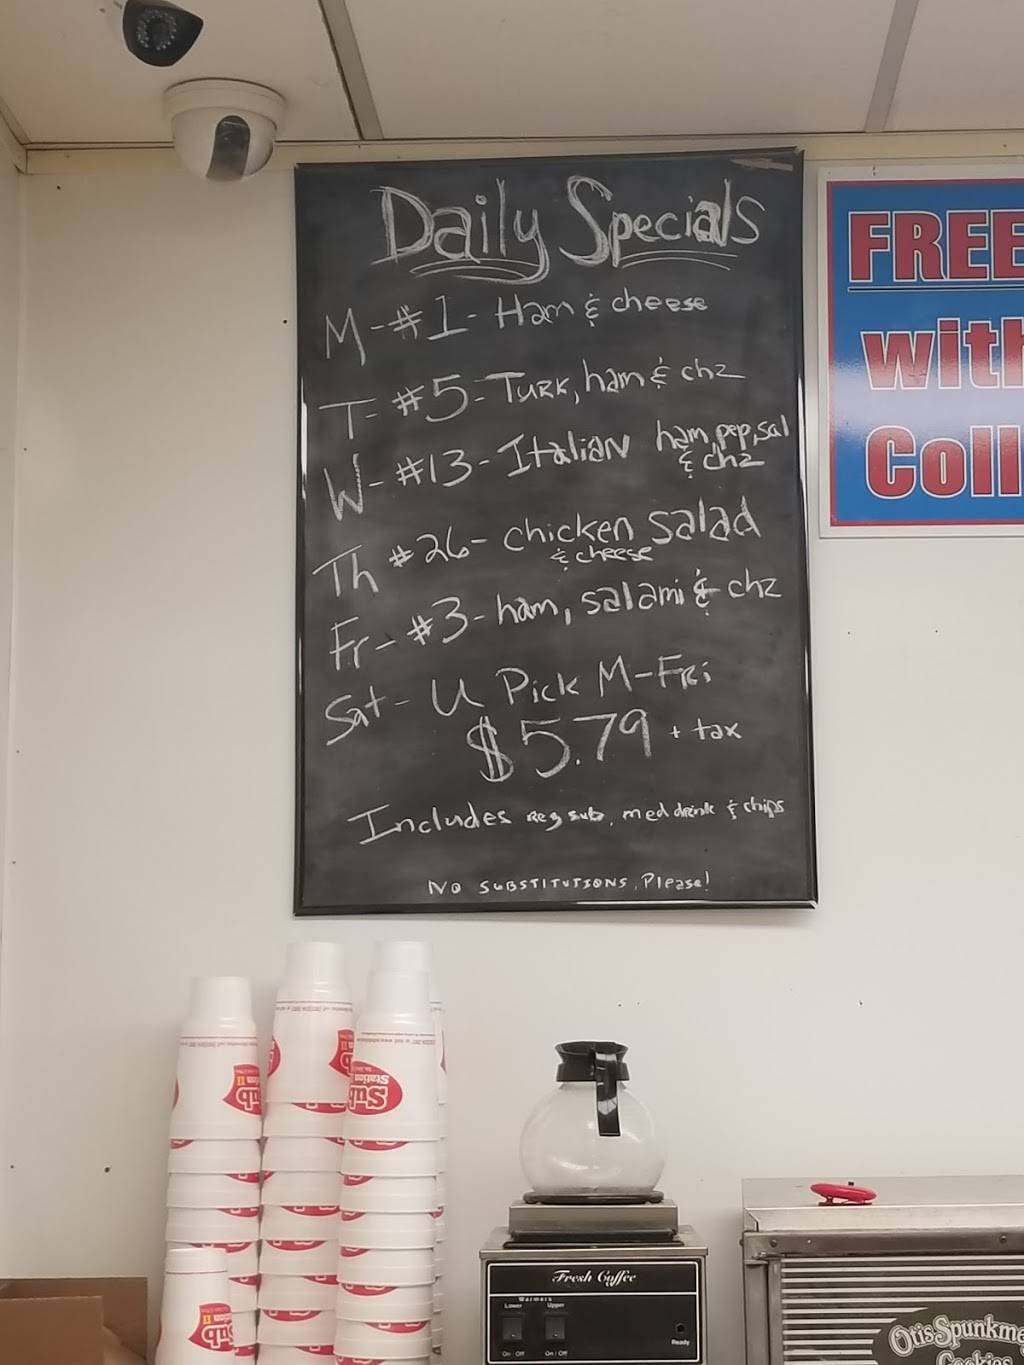 Daily Specials
M - #1 - Ham & cheese
T - #5 - Turk, ham & chz
W - #13 - Italian ham, pep, sal
& chz
Th #26 - chicken salad
& cheese
Fr - #3 - ham, salami & chz
Sat - U Pick M-Fri
$5.79 + tax
Includes reg sub, med drink & chips
NO SUBSTITUTIONS, Please!
FREE
with
Coll
Sub
Station II
Sub
Station II
Sub
Station II
Fresh Coffee
Warmers
Lower Upper
On / Off On / Off
Ready
Otis Spunkme
Cookies